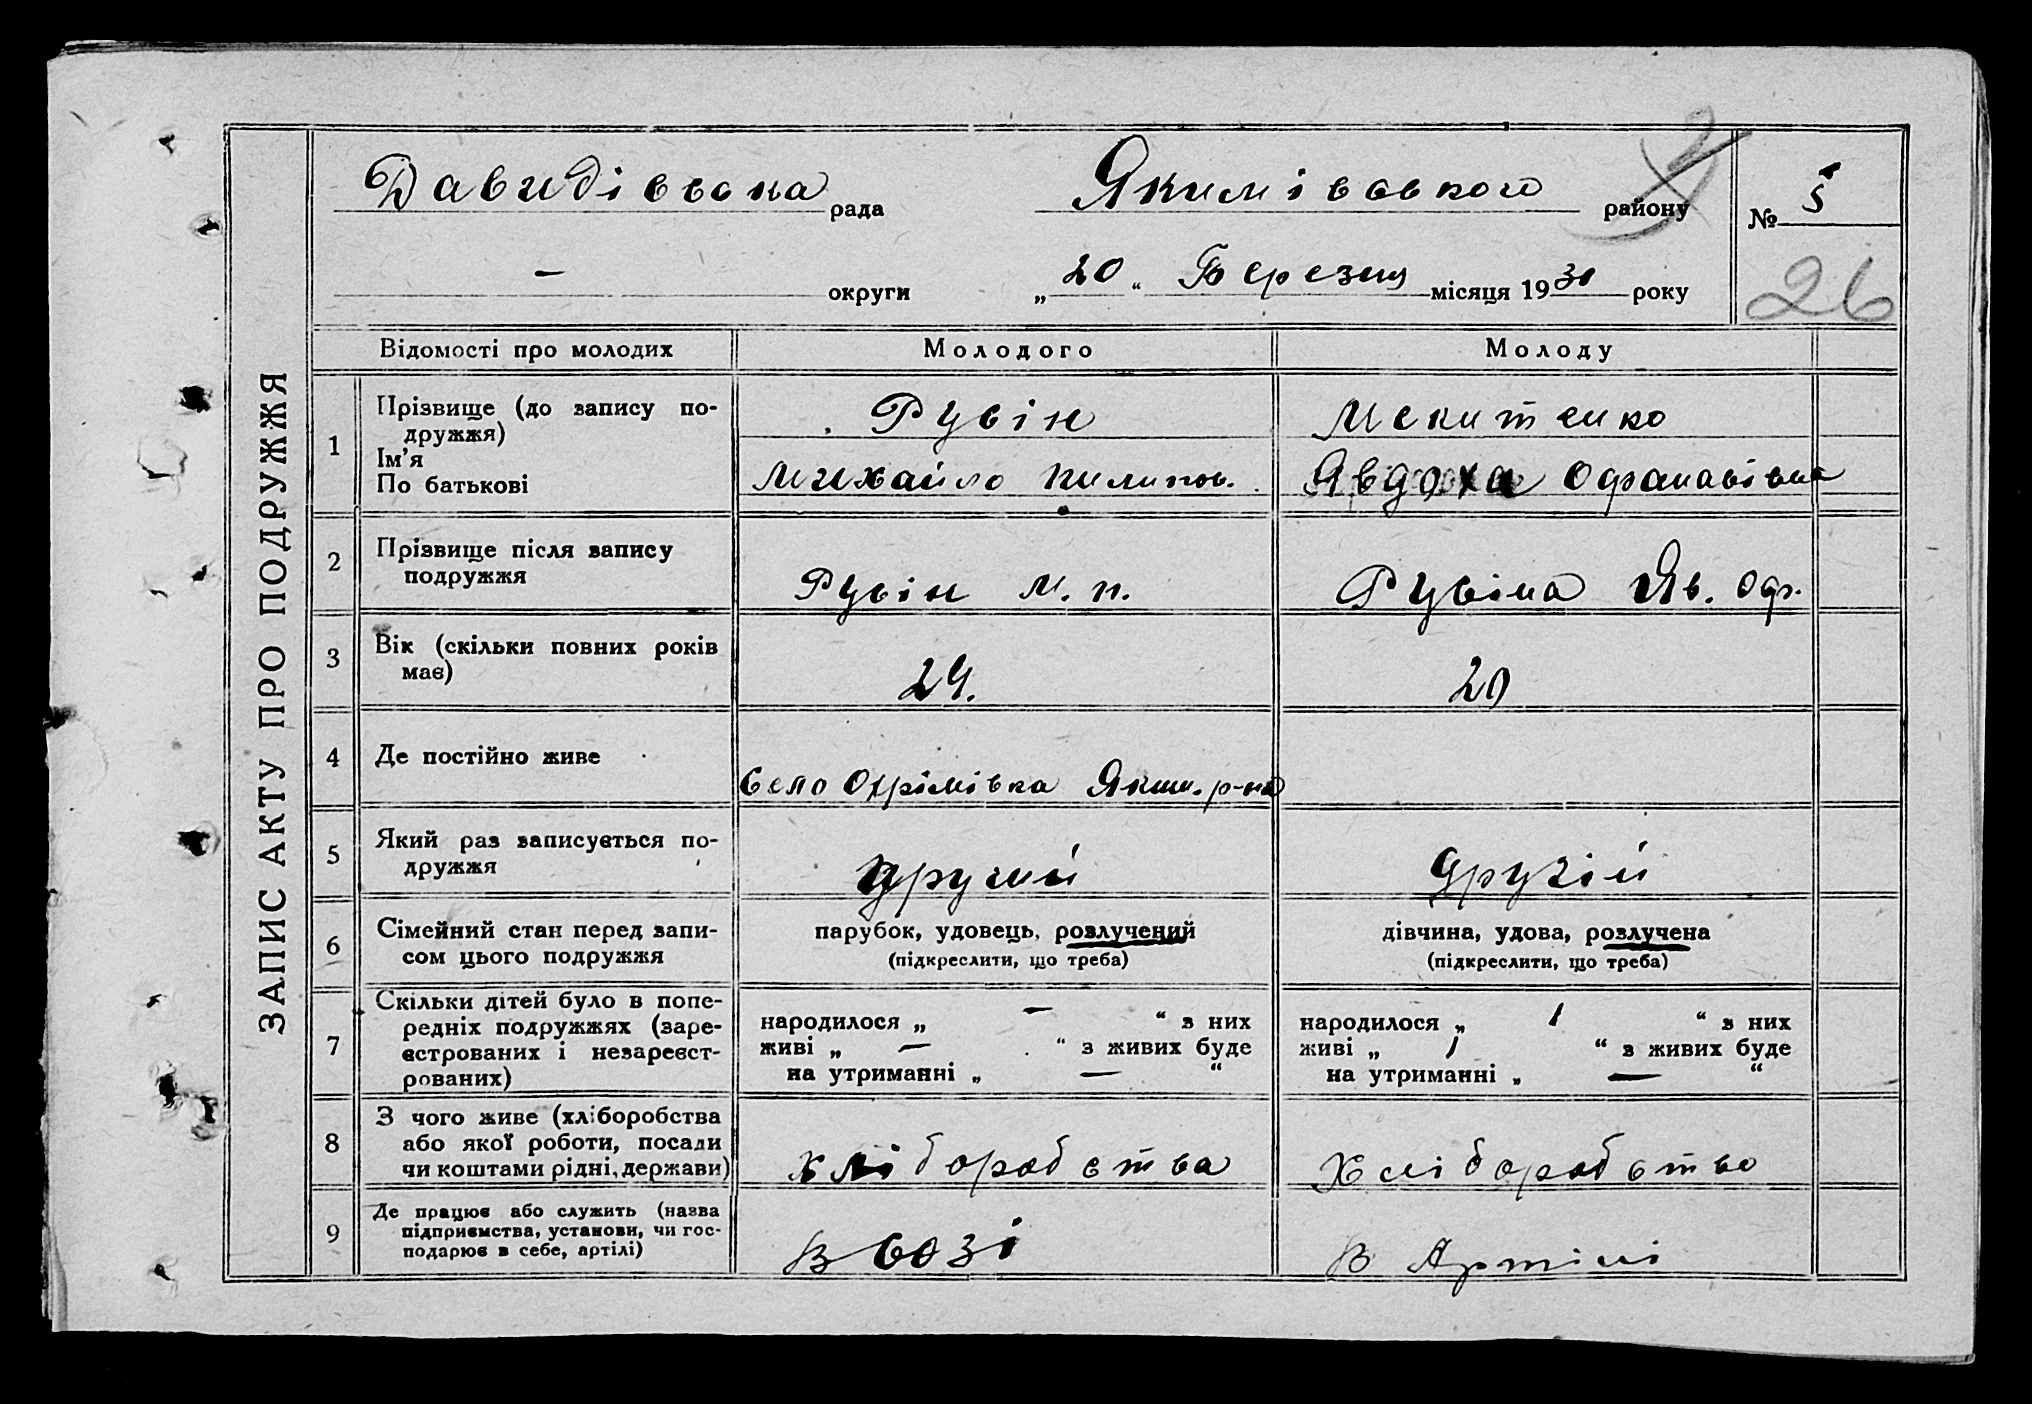 ЗАПИС АКТУ ПРО ПОДРУЖЖЯ
Давидівська рада Якимівського району № 5
— округи „20“ Березня місяця 1931 року 26
Відомості про молодих Молодого Молоду
1 Прізвище (до запису подружжя) Рувін Мекитенко
Ім’я
По батькові Михайло Пилипов. Явдоха Офанасівна
2 Прізвище після запису подружжя Рувін М. П. Рувіна Яв. Оф.
3 Вік (скільки повних років має) 24. 20
4 Де постійно живе Село Охрімівка Яким. р-на
5 Який раз записується подружжя другий другій
6 Сімейний стан перед записом цього подружжя парубок, удовець, розлучений дівчина, удова, розлучена
(підкреслити, що треба) (підкреслити, що треба)
7 Скільки дітей було в попередніх подружжях (зареєстрованих і незареєстрованих)
народилося „ — “ з них народилося „ 1 “ з них
живі „ — “ з живих буде живі „ 1 “ з живих буде
на утриманні „ — “ на утриманні „ — “
8 З чого живе (хліборобства або якої роботи, посади чи коштами рідні, держави) хліборобства Хліборобство
9 Де працює або служить (назва підприємства, установи, чи господарює в себе, артілі) В созі В Артілі